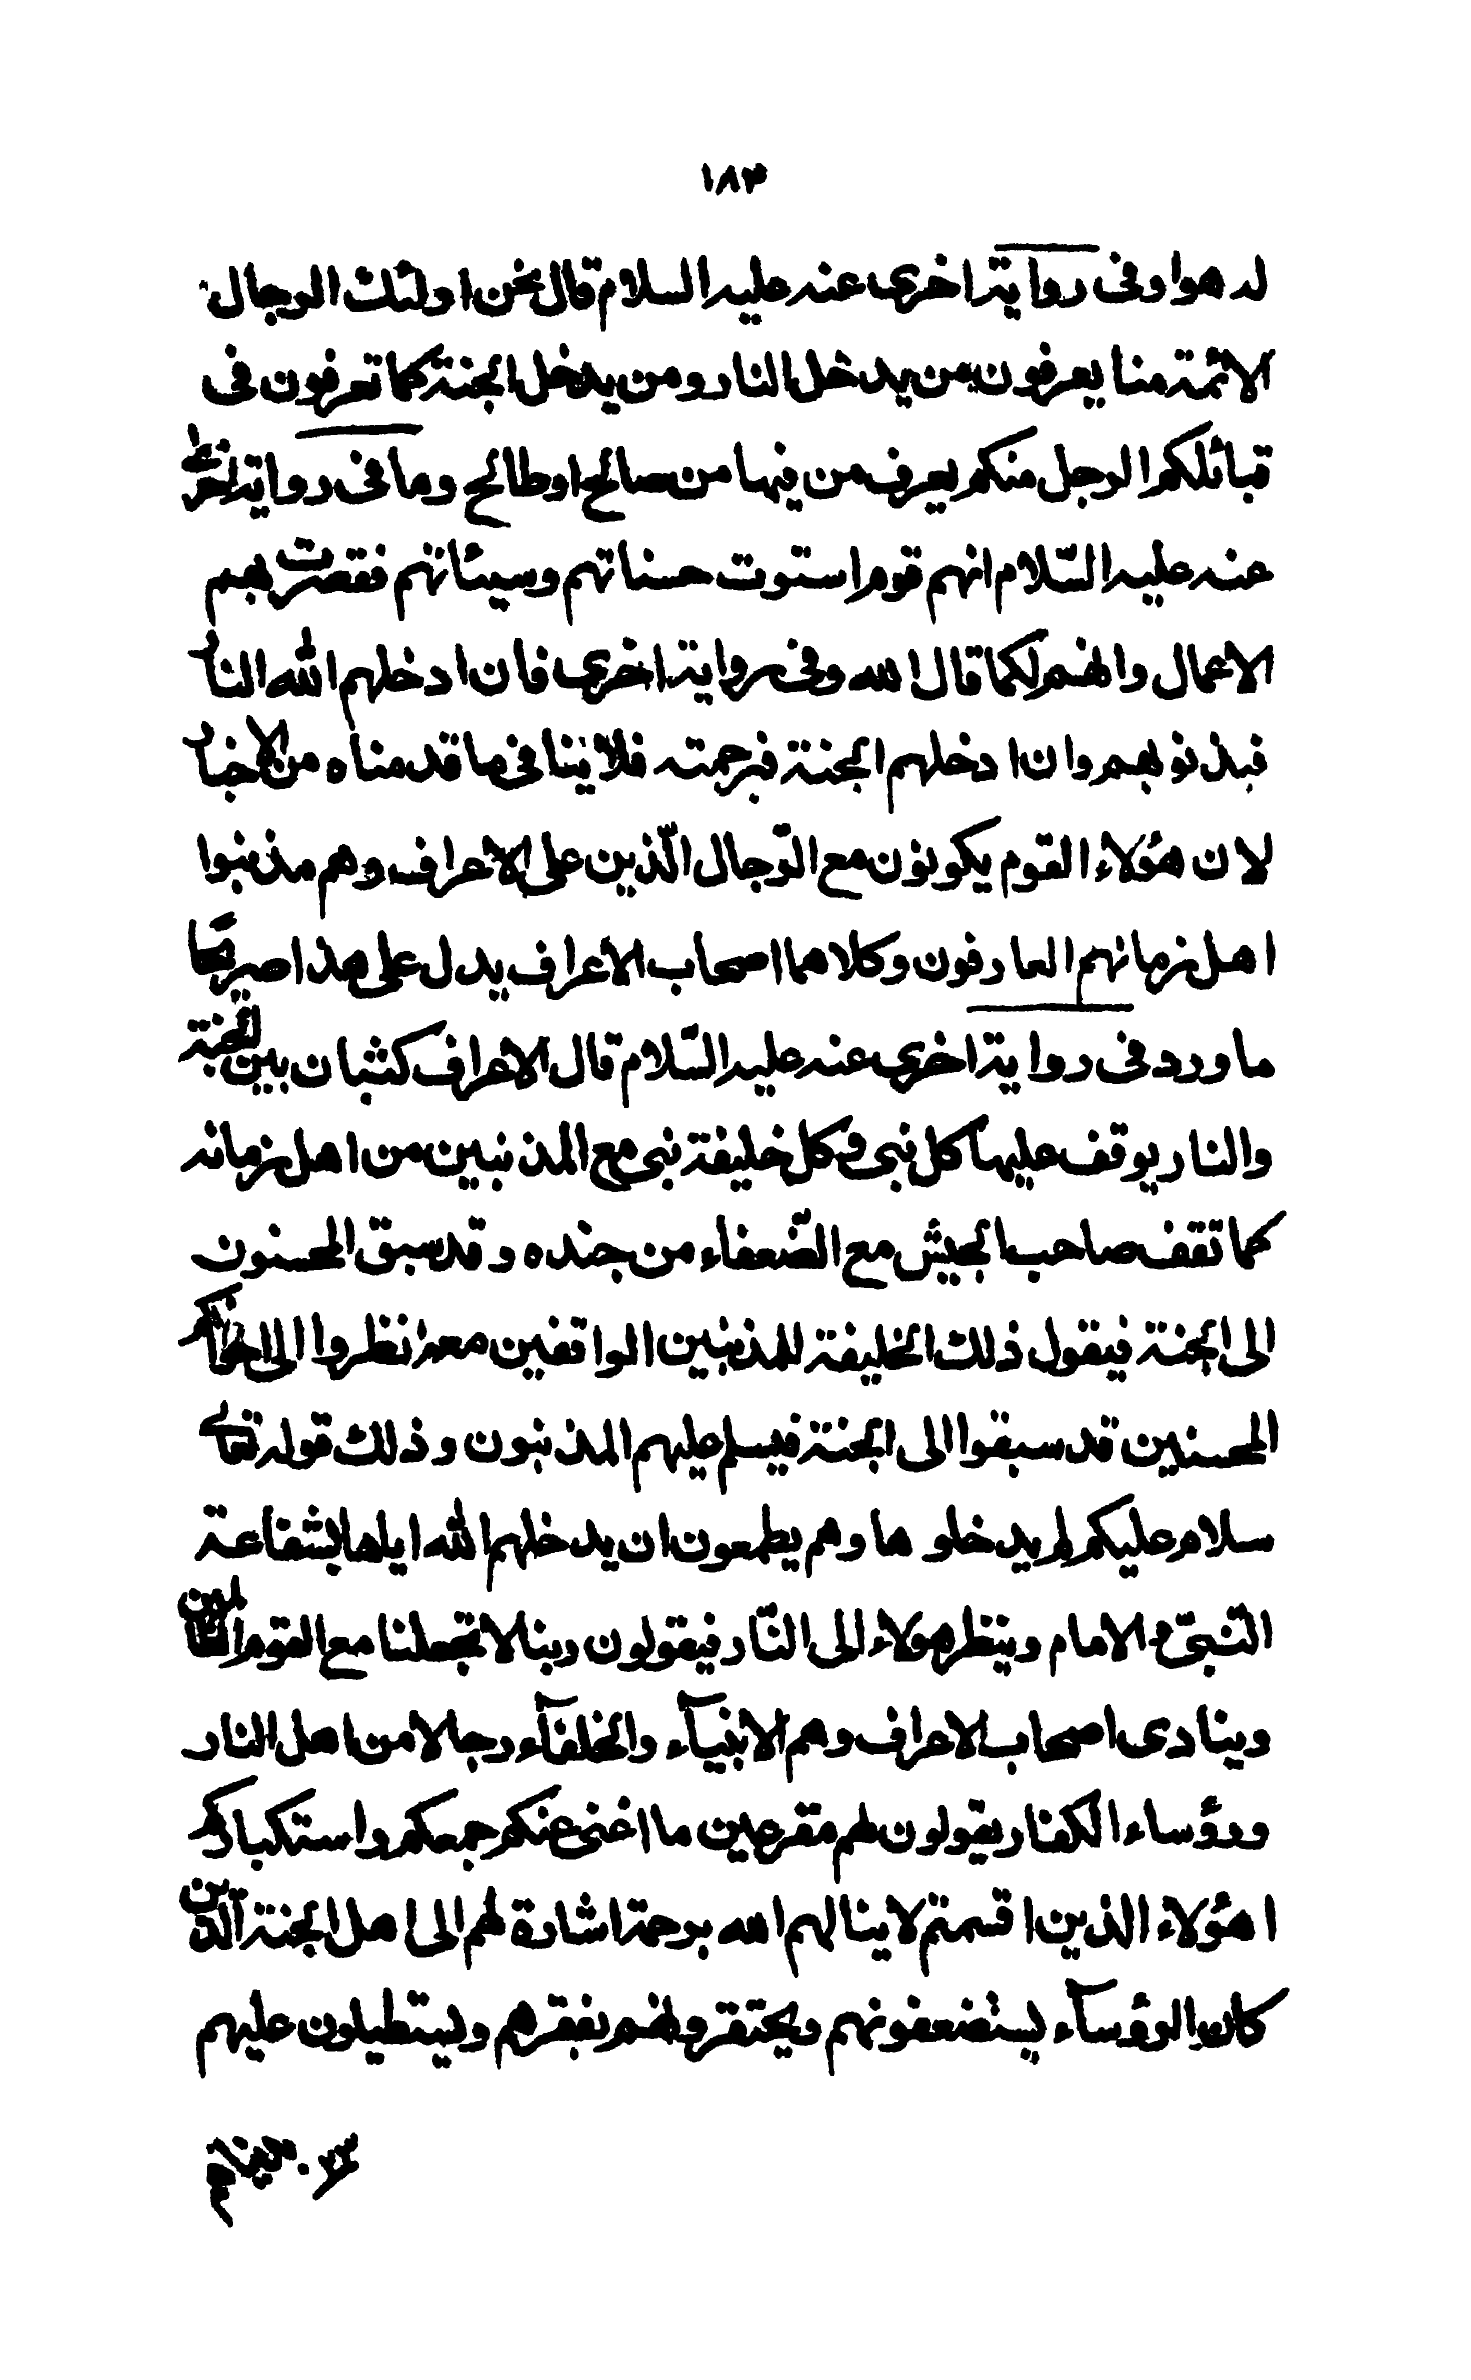 ١٨٣
له هوا وفى رواية اخرى عنه عليه السلام قال نحن اولئك الرجال
الائمة منا يعرفون من يدخل النار ومن يدخل الجنة كما تعرفون فى
قبائلكم الرجل منكم يعرف من فيها من صالح او طالح وما فى رواية اخرى
عنه عليه السّلام انهم قوم استوت حسناتهم وسيئاتهم فقصرت بهم
الاعمال وانهم لكما قال الله وفى رواية اخرى فان ادخلهم الله النار
فبذنوبهم وان ادخلهم الجنة فبرحمته فلا ينافى ما قدمناه من الاخبار
لان هؤلاء القوم يكونون مع الرّجال الّذين على الاعراف وهم مذنبوا
اهل زمانهم العارفون وكلاهما اصحاب الاعراف يدل على هذا صريحًا
ما ورد فى رواية اخرى عنه عليه السّلام قال الاعراف كثبان بين الجنة
والنار يوقف عليها كل نبى وكل خليفة نبى مع المذنبين من اهل زمانه
كما تقف صاحب الجيش مع الضّعفاء من جنده وقد سبق المحسنون
الى الجنة فيقول ذلك الخليفة للمذنبين الواقفين معه انظروا الى اخوانكم
المحسنين قد سبقوا الى الجنة فيسلم عليهم المذنبون وذلك قوله تعالى
سلام عليكم لم يدخلوها وهم يطمعون ان يدخلهم الله اياها بشفاعة
النّبىّ والامام وينظر هؤلاء الى النّار فيقولون ربنا لا تجعلنا مع القوم الظالمين
وينادى اصحاب الاعراف وهم الانبيآء والخلفآء رجالا من اهل النار
ورؤساء الكفار يقولون لهم مقرعين ما اغنى عنكم جمعكم واستكباركم
اهؤلاء الذين اقسمتم لا ينالهم الله برحمة اشارة لهم الى اهل الجنة الّذين
كان الرؤسآء يستضعفونهم ويحتقرونهم بفقرهم ويستطيلون عليهم